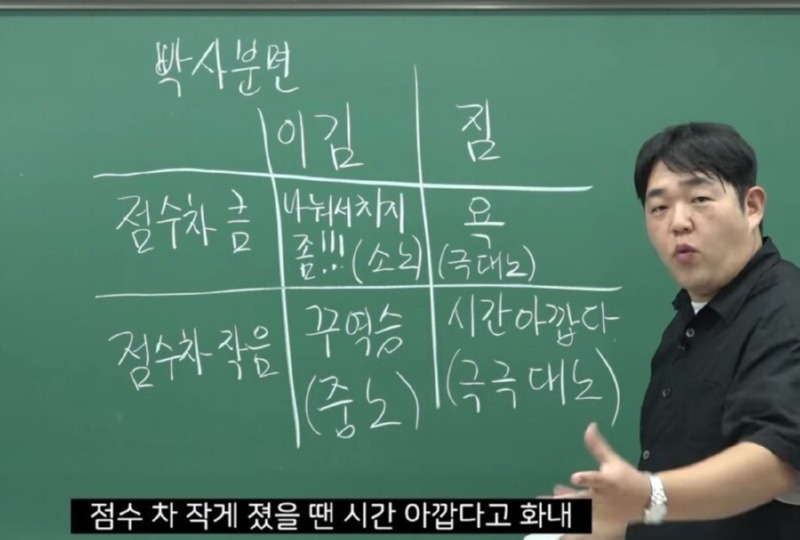 빡사분면
이김 짐
점수차 큼 나눠서 치지 욕
좀!!! (소노) (극대노)
점수차 작음 꾸역승 시간 아깝다
(중노) (극극대노)
점수 차 작게 졌을 땐 시간 아깝다고 화내